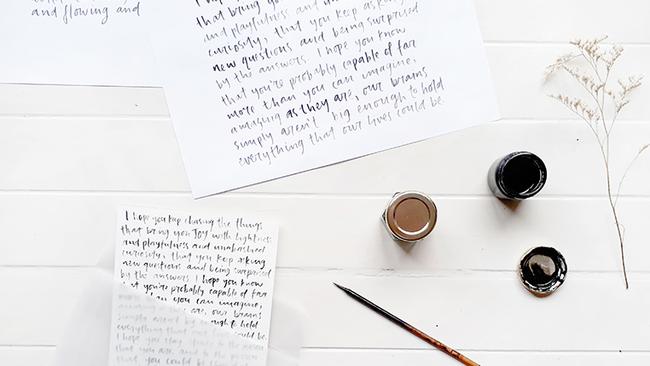 and flowing and
that bring you
and playfulness and
curiosity, that you keep asking
new questions and being surprised
by the answers. I hope you know
that you're probably capable of far
more than you can imagine,
amazing as they are, our brains
simply aren't big enough to hold
everything that our lives could be.
I hope you keep chasing the things
that bring you JOY with lightness
and playfulness and unabashed
curiosity, that you keep asking
new questions and being surprised
by the answers I hope you know
you're probably capable of far
than you can imagine,
as they are, our brains
simply aren't big enough to hold
everything that our lives could be.
I hope you stay
that you are, and to the person
that you could be